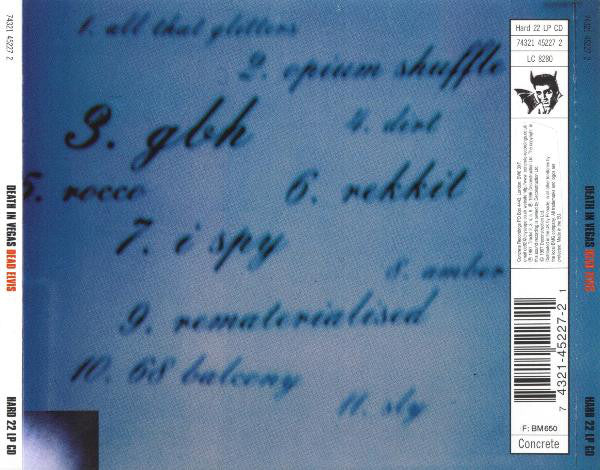 74321 45227 2
DEATH IN VEGAS DEAD ELVIS
HARD 22 LP CD
1. all that glitters
2. opium shuffle
3. gbh
4. dirt
5. rocco
6. rekkit
7. i spy
8. amber
9. rematerialised
10. 68 balcony
11. sly
Hard 22 LP CD
74321 45227 2
LC 8280
7 4321-45227-2 1
F: BM650
Concrete
74321 45227 2
DEATH IN VEGAS DEAD ELVIS
HARD 22 LP CD